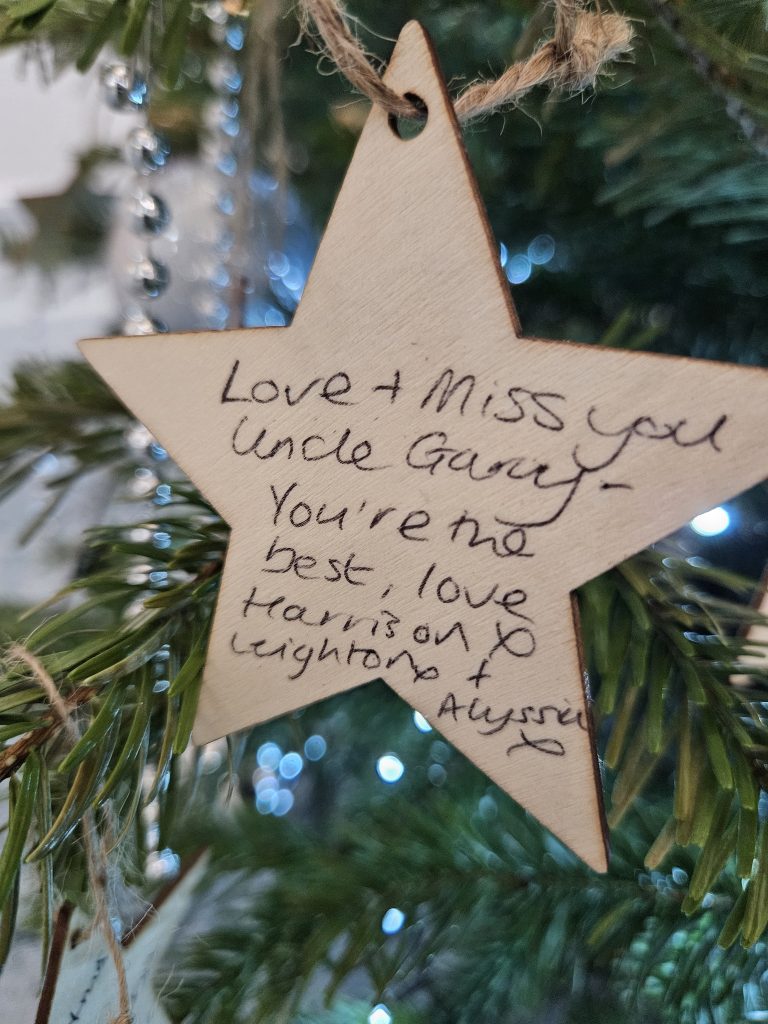 Love + Miss you
Uncle Garry -
You're the
best, love
Harrison x
Leighton x +
Alyssia
x